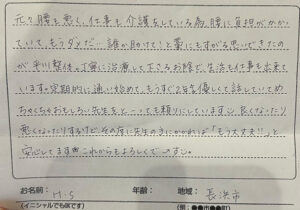 元々腰も悪く、仕事も介護をしている為 腰に負担がかかっ
ていて、もうダメだ… 誰か助けて!と藁にもすがる思いできたの
が平川整体。丁寧に治療して下さるお陰で、生活も仕事も出来て
います。定期的に通い始めて、もうすぐ2年 優しくて話していてめ
ちゃくちゃおもしろい先生をと〜っても頼りにしています。良くなったり
悪くなったりするけど、その度に先生のにかかれば「もう大丈夫!!」と
安心してます これからもよろしくで〜す。
お名前: M.S 年齢: 地域: 長浜市
(イニシャルでも可です) (例:●●市●●町)